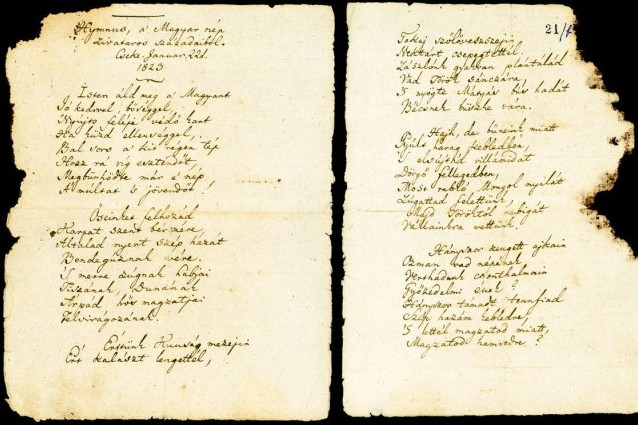 Hymnus, a' Magyar nép
Zivataros századaiból.
Cseke Januar. 22d.
1823
Isten áldd meg a' Magyart
Jó kedvvel, bőséggel,
Nyújts feléje védő kart
Ha küzd ellenséggel,
Bal sors a' kit régen tép
Hozz rá víg esztendőt,
Megbűnhödte már e' nép
A' multat 's jövendőt!
Őseinket felhozád
Kárpát szent bérczére,
Általad nyert szép hazát
Bendegúznak vére.
'S merre zúgnak habjai
Tiszának, Dunának
Árpád hős magzatjai
Felvirágozának.
Értünk Kunság mezein
Ért kalászt lengettél,
21/
Tokaj szőlővesszein
Nektárt csepegtettél.
Zászlónk gyakran plántálád
Vad Török sánczára,
'S nyögte Mátyás bús hadát
Bécsnek büszke vára.
Hajh, de bűneink miatt
Gyúlt harag kebledben,
'S elsújtád villámidat
Dörgő fellegedben,
Most rabló Mongol nyilát
Zúgattad felettünk,
Majd Töröktől rabigát
Vállainkra vettünk.
Hányszor zengett ajkain
Ozman vad népének
Vert hadunk csonthalmain
Győzedelmi ének!
Hányszor támadt tenfiad
Szép hazám kebledre,
'S lettél magzatod miatt,
Magzatod hamvvedre?